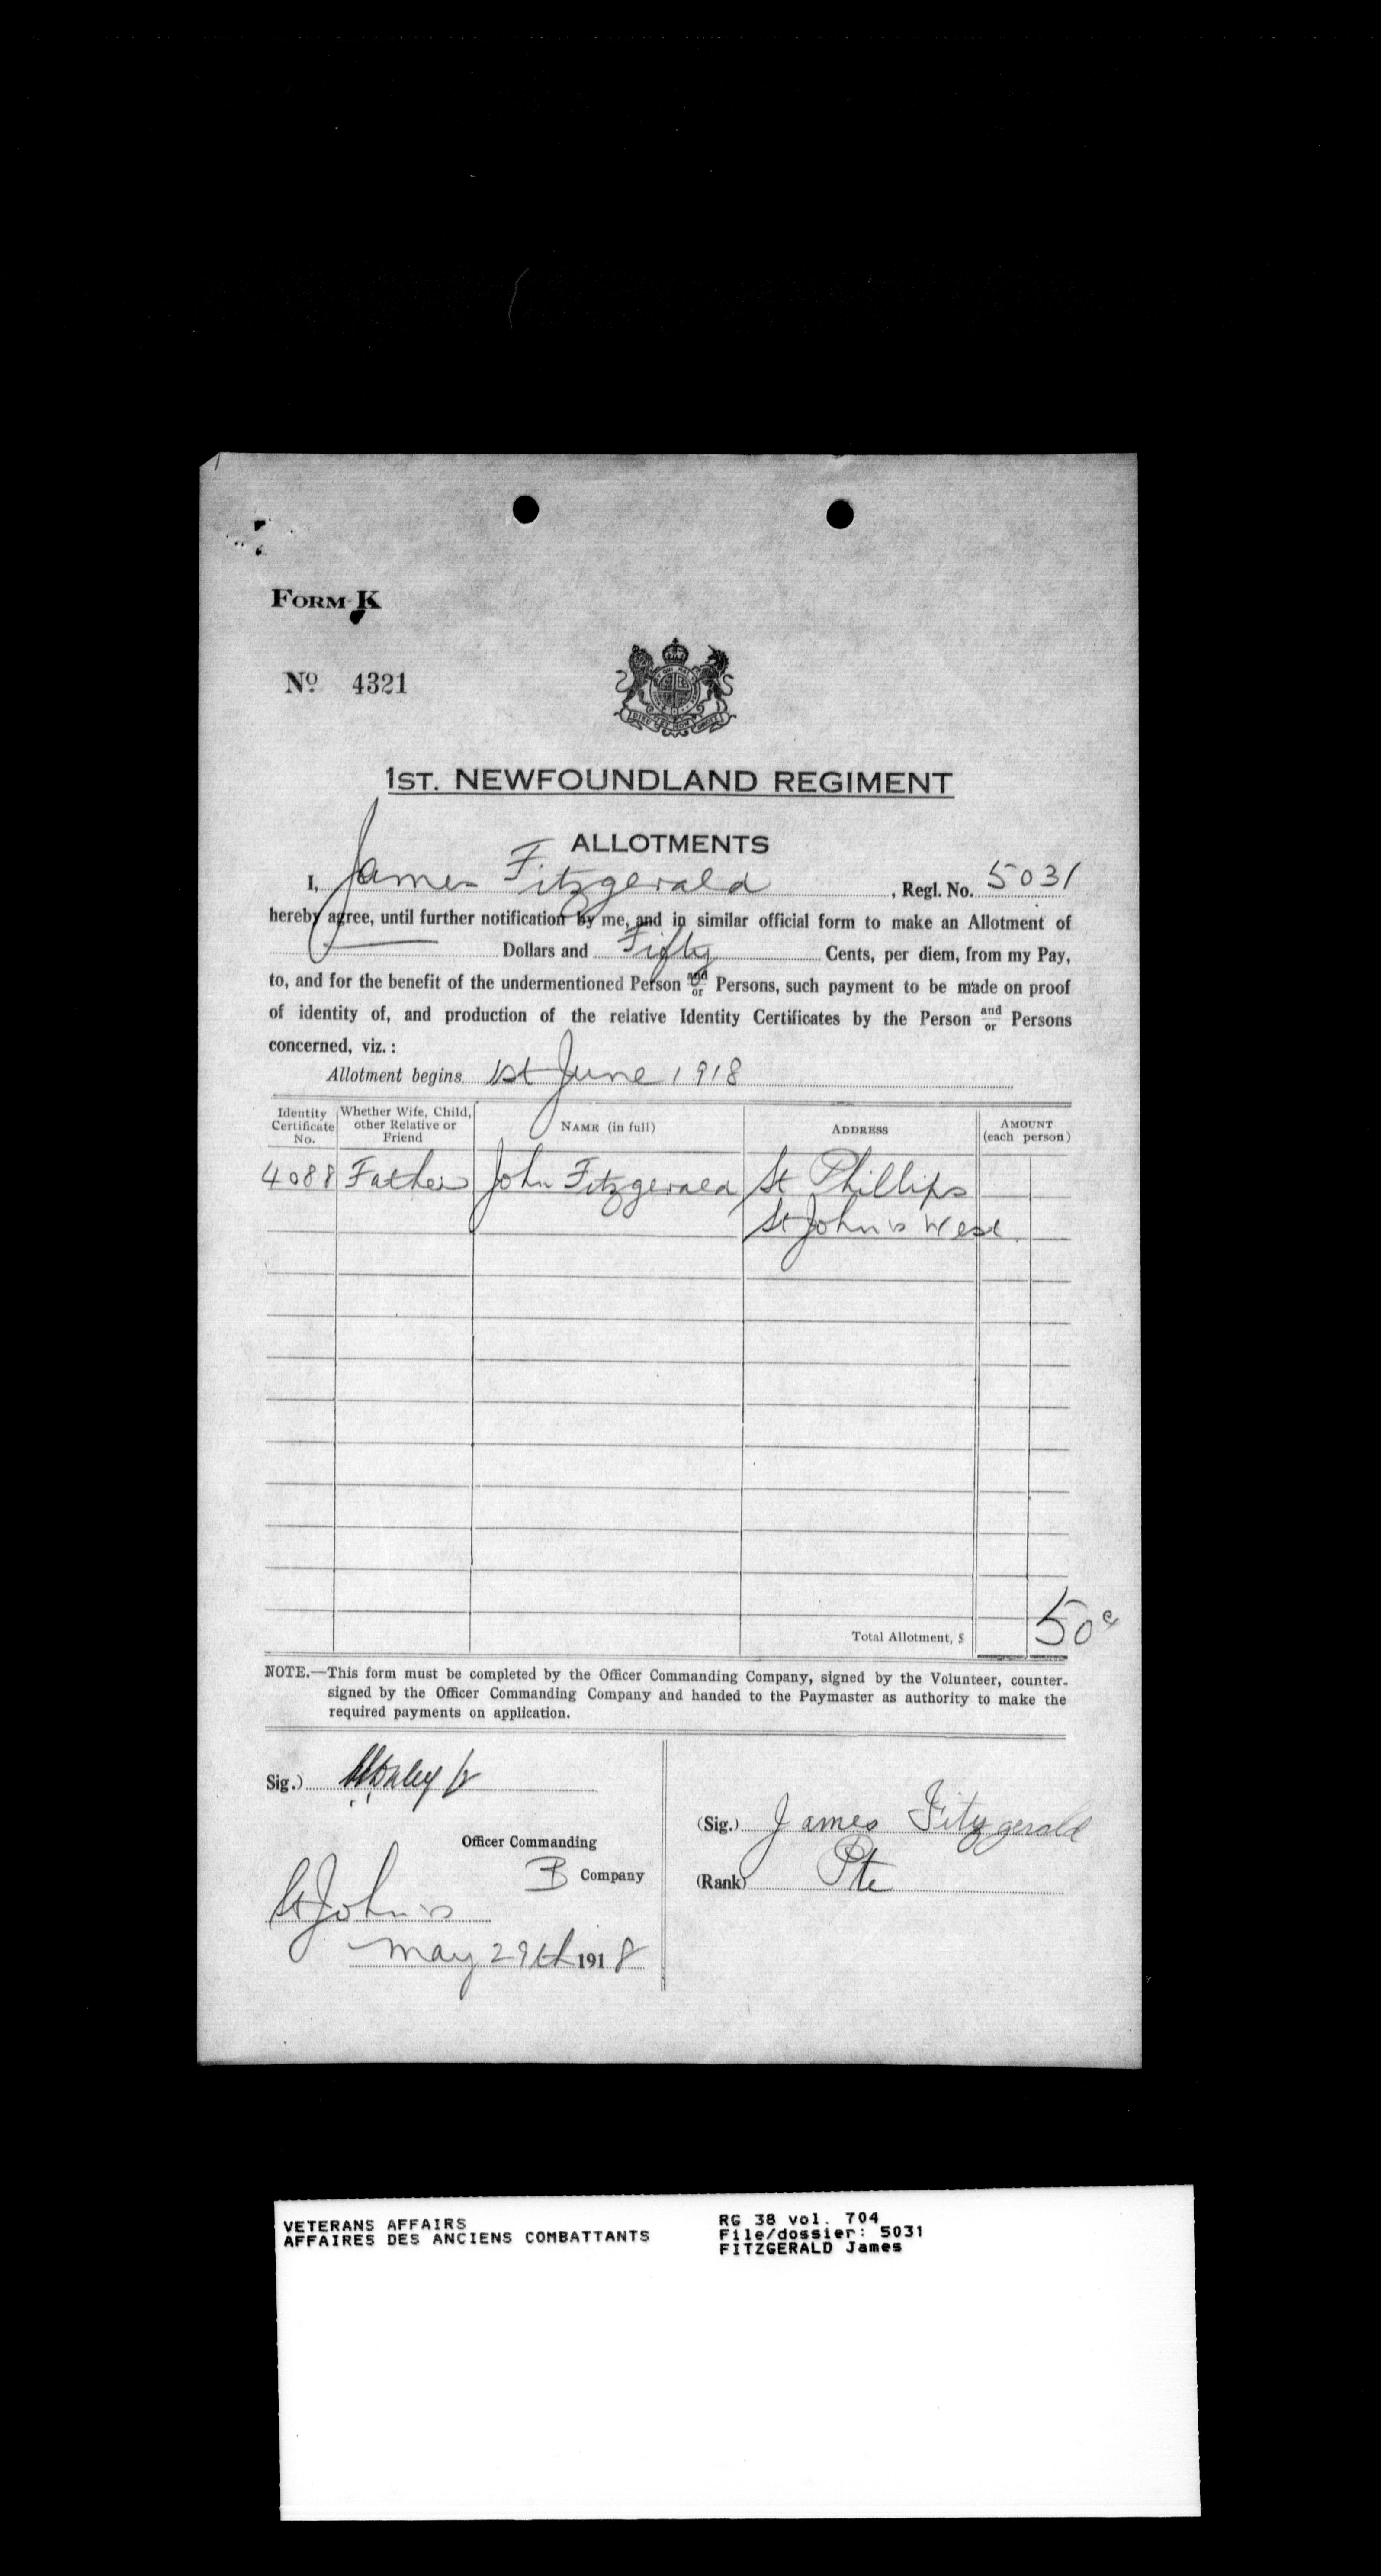 FORM K
Nº 4321
1ST. NEWFOUNDLAND REGIMENT
ALLOTMENTS
I, James Fitzgerald, Regl. No. 5031
hereby agree, until further notification by me, and in similar official form to make an Allotment of
Dollars and Fifty Cents, per diem, from my Pay,
to, and for the benefit of the undermentioned Person and/or Persons, such payment to be made on proof
of identity of, and production of the relative Identity Certificates by the Person and/or Persons
concerned, viz. :
Allotment begins 1st June 1918
Identity Certificate No. Whether Wife, Child, other Relative or Friend NAME (in full) ADDRESS AMOUNT (each person)
4088 Father John Fitzgerald St Phillips
St John's West.
Total Allotment, $ 50c
NOTE.—This form must be completed by the Officer Commanding Company, signed by the Volunteer, counter-
signed by the Officer Commanding Company and handed to the Paymaster as authority to make the
required payments on application.
Sig.)
Officer Commanding
B Company
St John's
May 29th 1918
(Sig.) James Fitzgerald
(Rank) Pte
VETERANS AFFAIRS
AFFAIRES DES ANCIENS COMBATTANTS
RG 38 vol. 704
File/dossier: 5031
FITZGERALD James